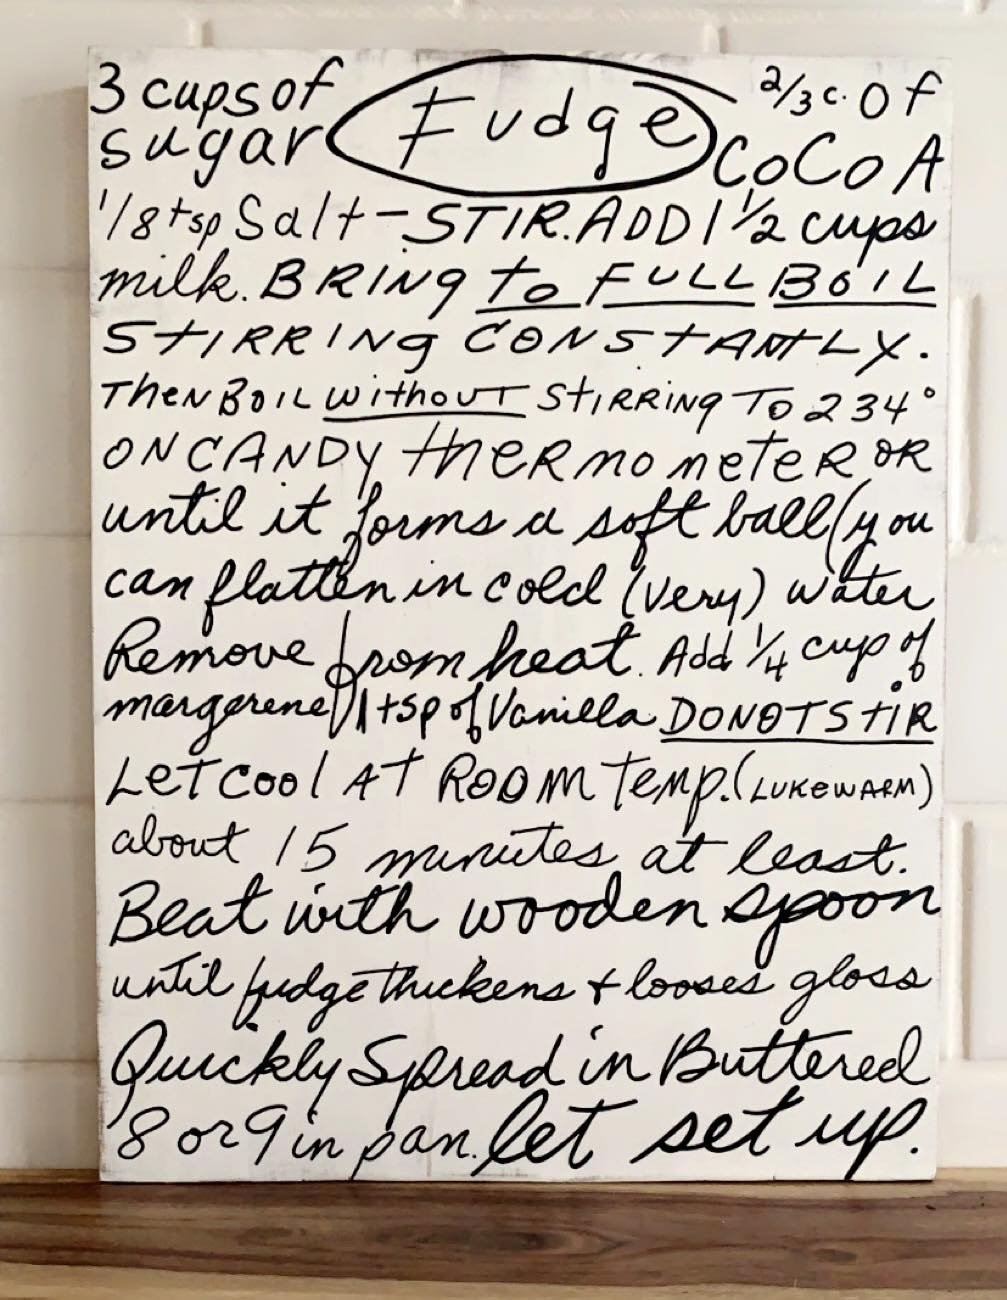 Fudge
3 cups of
sugar
2/3 c. Of
CoCoA
1/8 tsp Salt - STIR. ADD 1 1/2 cups
milk. BRINg to FULL BOIL
STIRRINg CONSTANTLY.
THEN BOIL without STIRRINg TO 234°
ON CANDY tHERmometER OR
until it forms a soft ball (you
can flatten in cold (very) water
Remove from heat. Add 1/4 cup of
margerene / 1 tsp of Vanilla DO NOT STIR
LET COOl AT ROOM TEmp. (LUKEWARM)
about 15 minutes at least.
Beat with wooden spoon
until fudge thickens + looses gloss
Quickly Spread in Buttered
8 or 9 in pan. let set up.